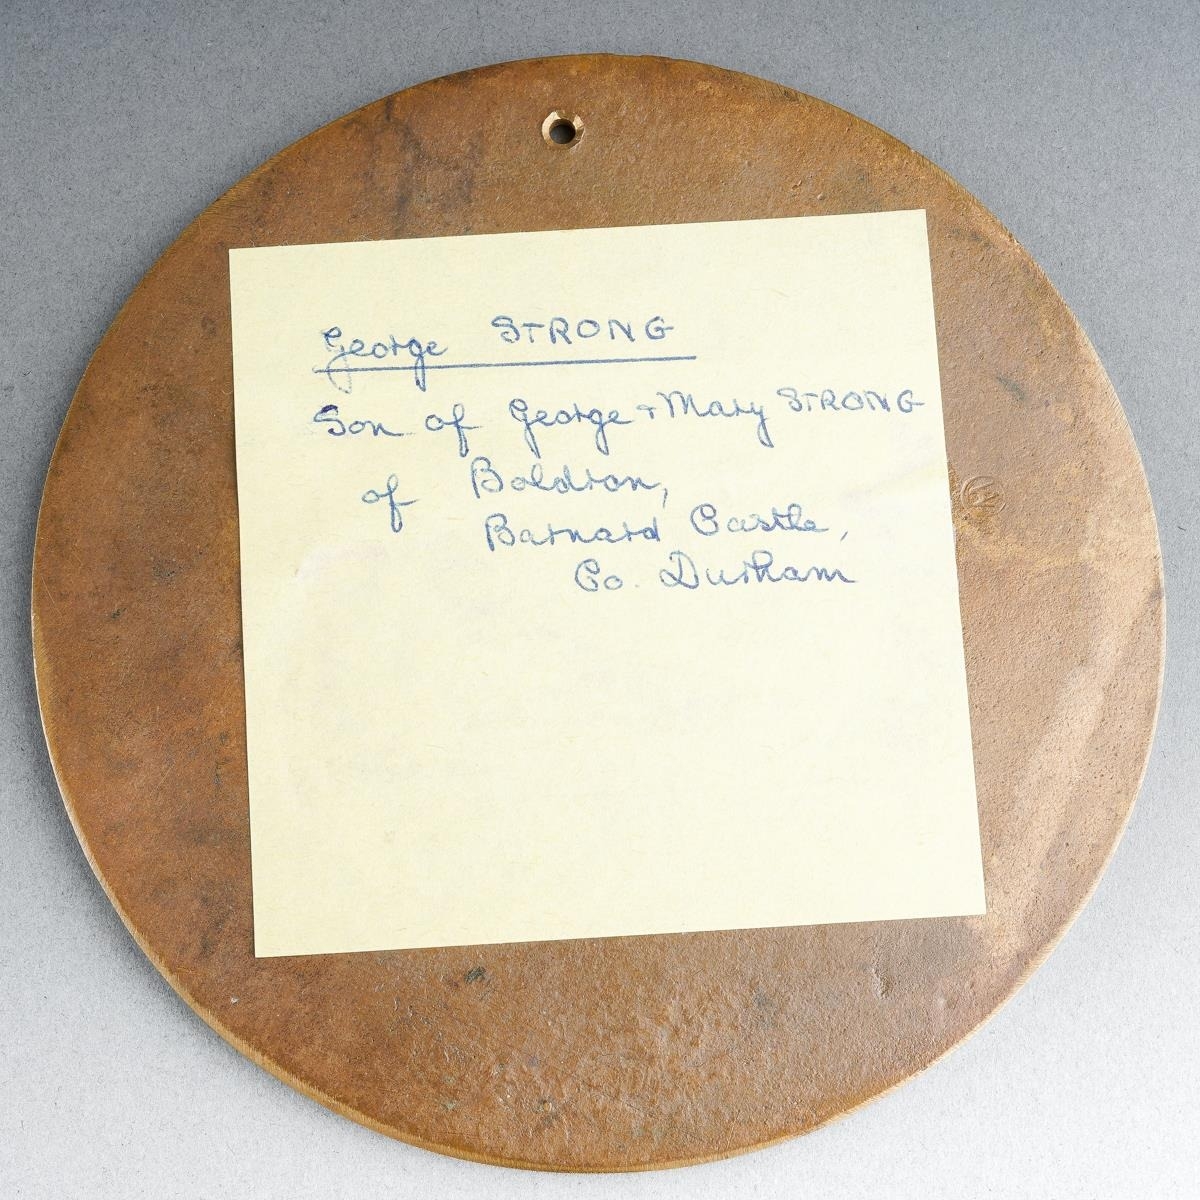 George STRONG
Son of George + Mary STRONG
of Boldron,
Barnard Castle,
Co. Durham